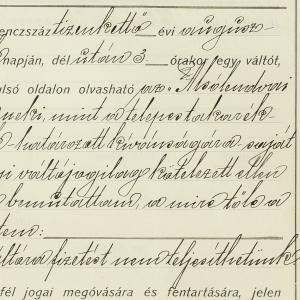 enczszáz tizenkettő évi augusz-
napján, dél után 3 órakor egy váltót,
ulsó oldalon olvasható az Alsólendvai
neki, mint a telepes takarék-
k határozott kívánságára saját
si váltójogilag kötelezett ellen
bemutattam, a mire tőle a
tem:
váltóra fizetést nem teljesíthetünk
fél jogai megóvására és fentartására, jelen